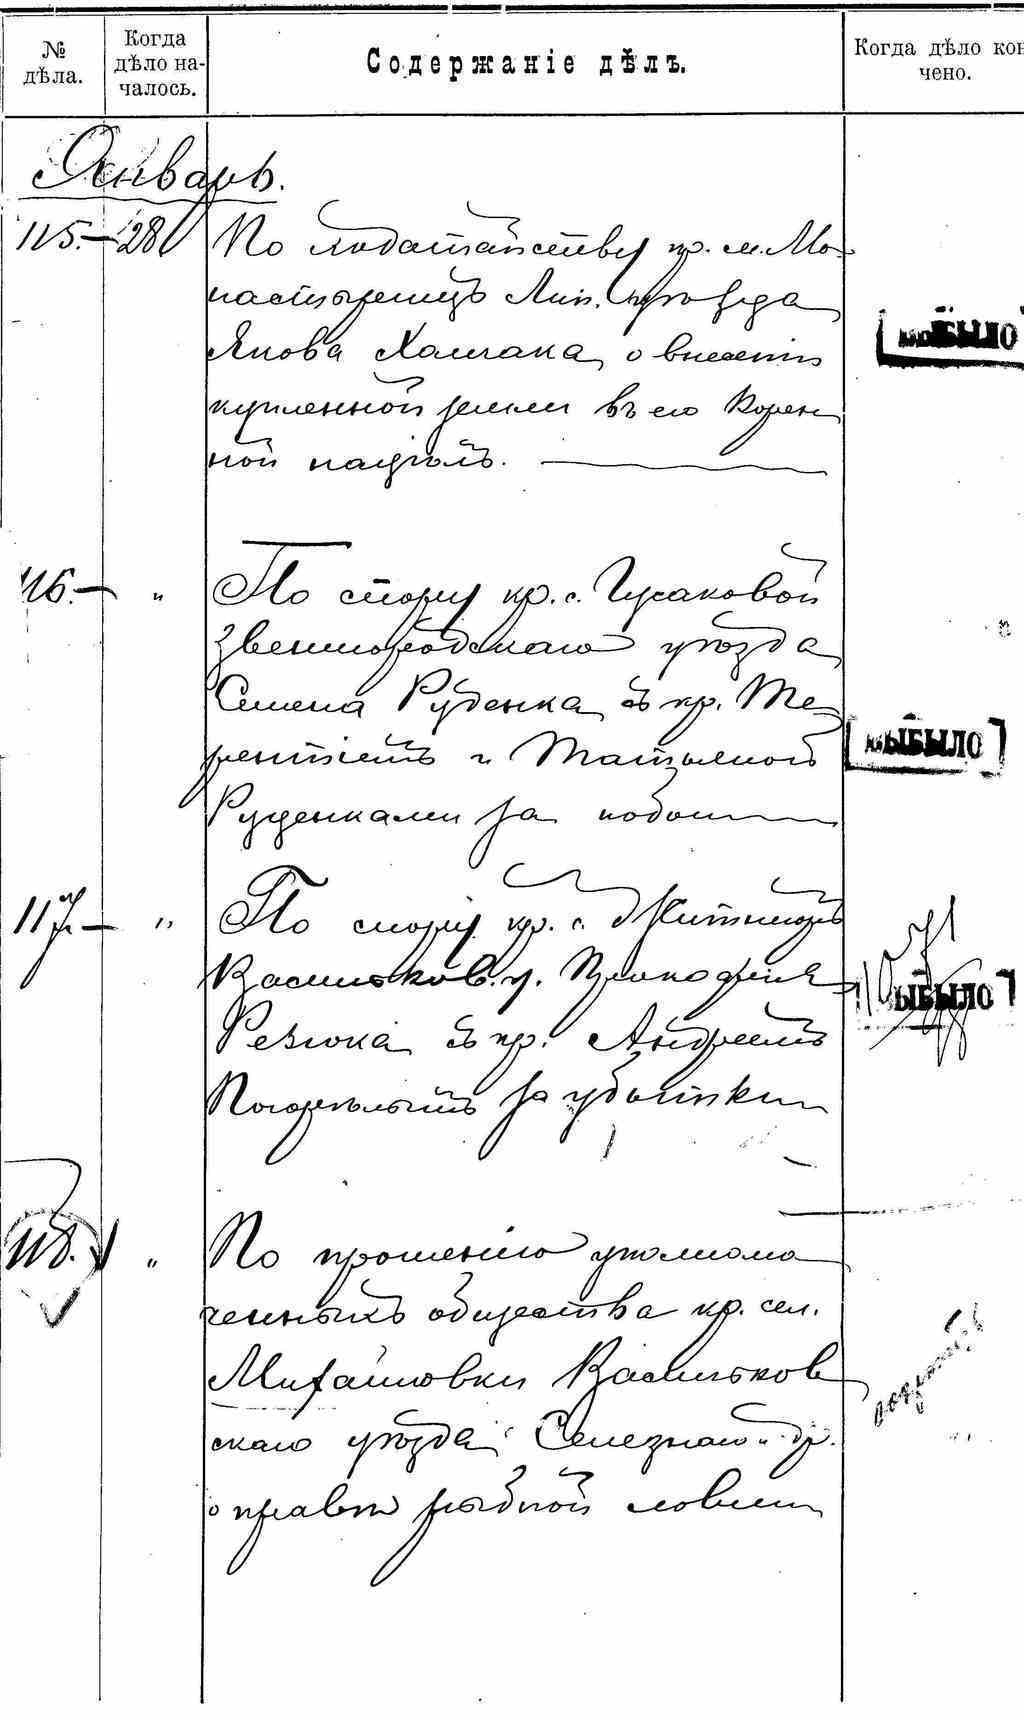 № дѣла.
Когда дѣло на-
чалось.
Содержаніе дѣлъ.
Когда дѣло кон
чено.
Январь.
115.– 28
По ходатайству кр. м. Мо-
настырищъ Лип. уѣзда
Якова Хамчака о внесеніи
купленной земли въ его Корен
ной надѣлъ.
ВЫБЫЛО
116.– „
По спору кр. с. Гусаковой
Звенигородскаго уѣзда
Семена Руденка съ кр. Те-
рентіемъ и Татьяной
Руденками за побои
ВЫБЫЛО
117.– „
По спору кр. с. Житниор
Васильков. у. Прокофія
Резюка съ кр. Андреемъ
Погорѣлымъ за убытки
ВЫБЫЛО
118. „
По прошенію уполномо
ченныхъ общества кр. сел.
Михайловки Васильков
скаго уѣзда Селезнаго и др.
о правѣ рыбной ловли